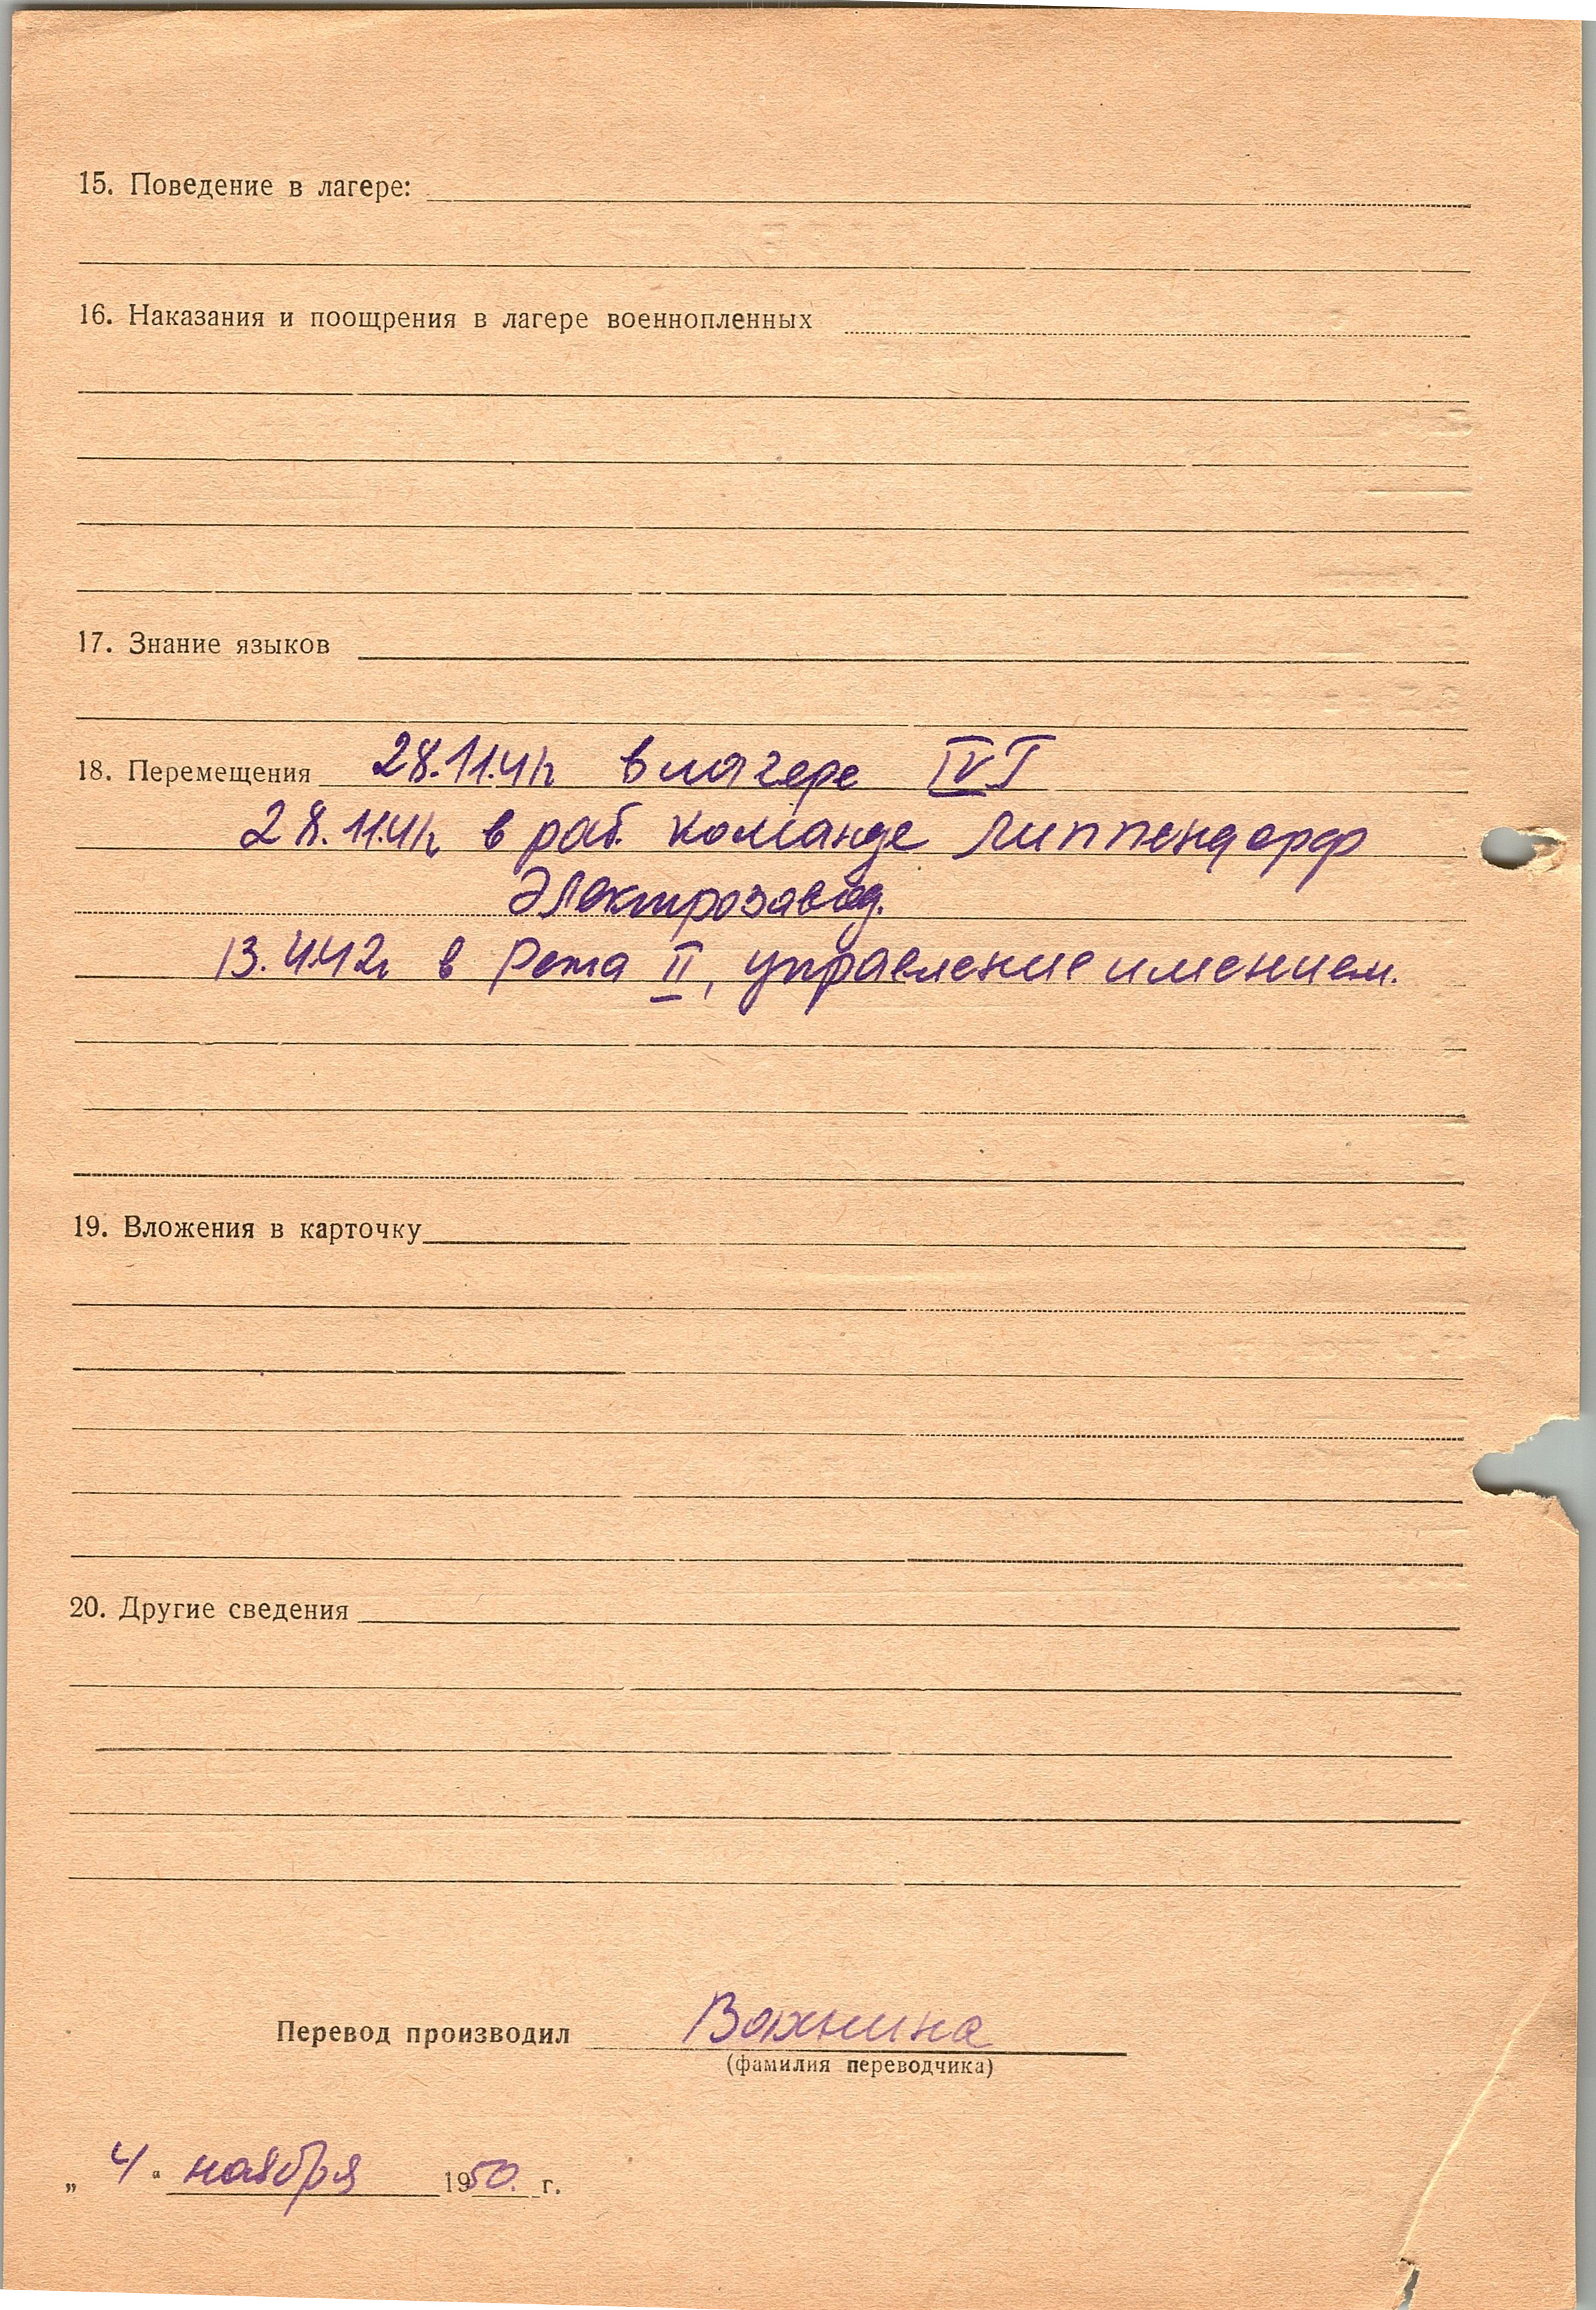 15. Поведение в лагере:
16. Наказания и поощрения в лагере военнопленных
17. Знание языков
18. Перемещения 28.11.41г в лагере IV Г
28.11.41г в раб. команде Липпендорф
Электрозавод.
13.4.42г в Рета II, управление имением.
19. Вложения в карточку
20. Другие сведения
Перевод производил Вахнина
(фамилия переводчика)
„ 4 “ ноября 1950. г.